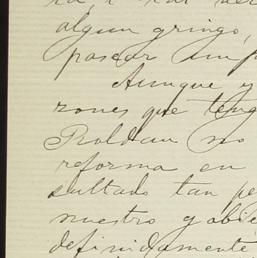 algun gringo,
pasear
Aunque y
zones que teng
Roldan no
reforma en
sultado tan pe
nuestro gobie
definidamente